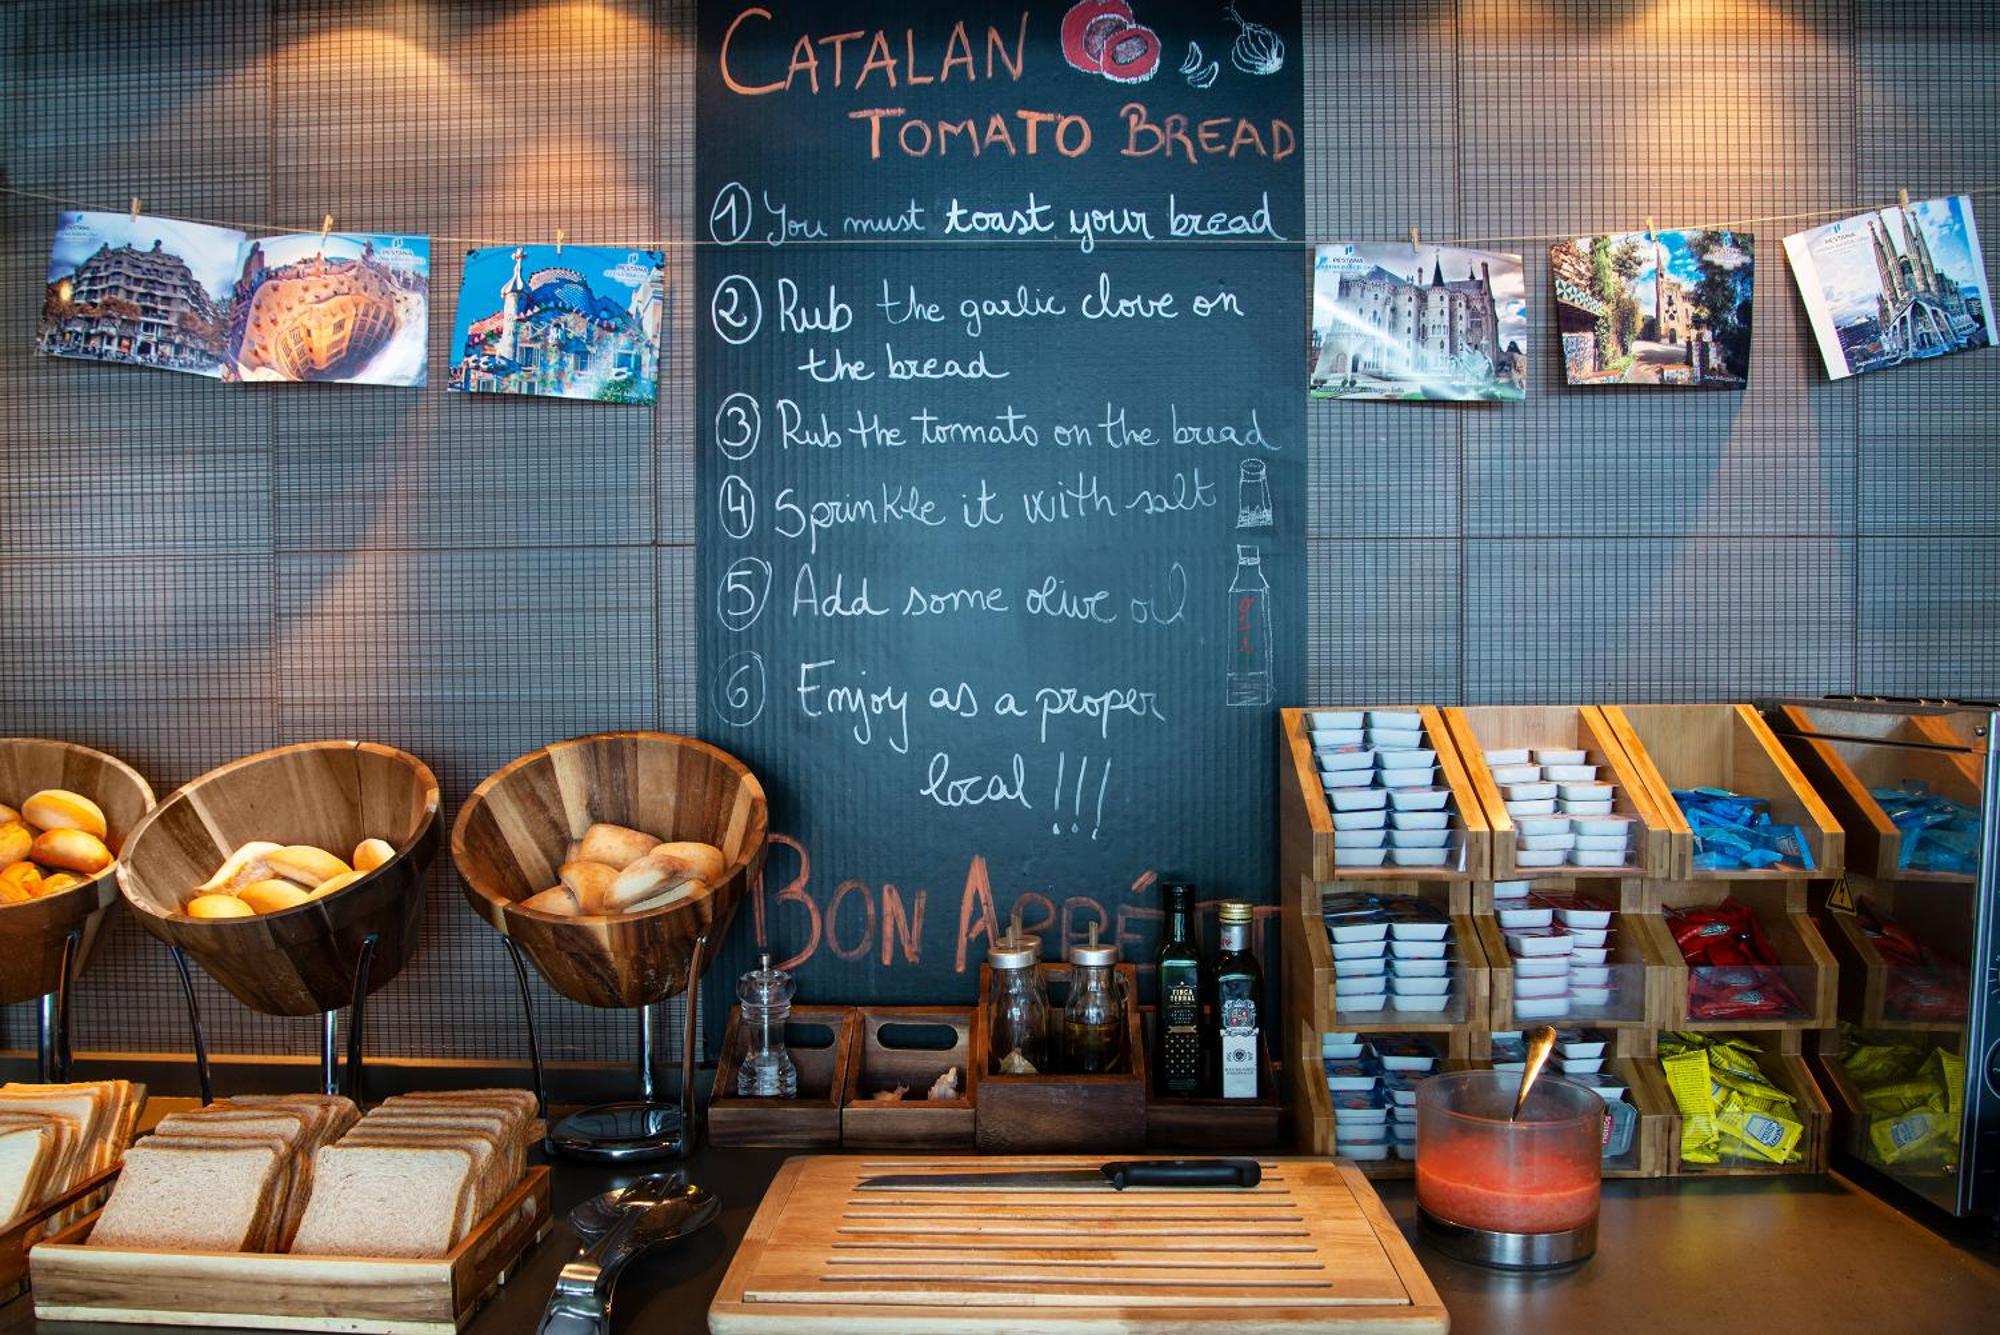 CATALAN
TOMATO BREAD
1 You must toast your bread
2 Rub the garlic clove on
the bread
3 Rub the tomato on the bread
4 Sprinkle it with salt
5 Add some olive oil
OIL
6 Enjoy as a proper
local !!!
BON APPÉTIT
PESTANA
PESTANA
PESTANA
PESTANA
PESTANA
PESTANA
FINCA